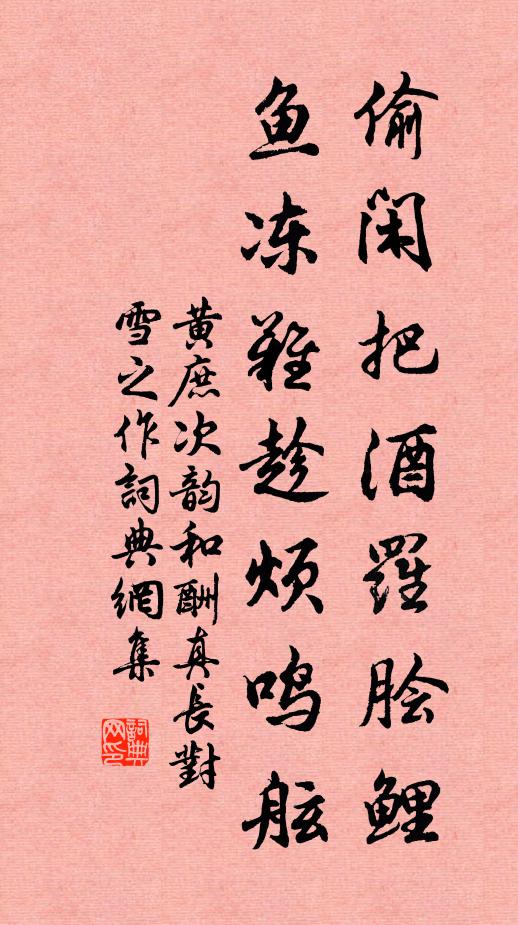 偷闲把酒罗脍鲤
鱼冻难趁烦鸣舷
黄庶次韵和酬真长對
雪之作詞典網集
詞典
网印